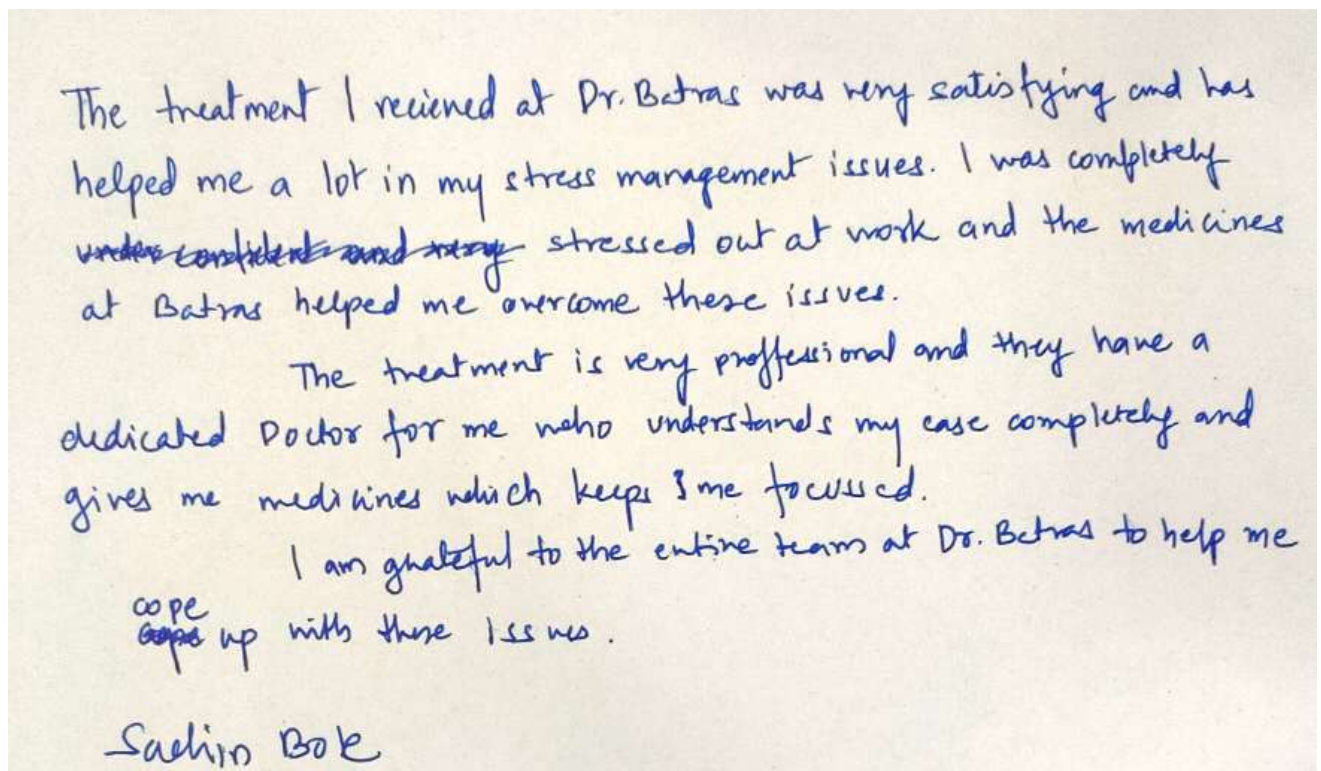 The treatment I recieved at Dr. Batras was very satisfying and has
helped me a lot in my stress management issues. I was completely
under confident and very stressed out at work and the medicines
at Batras helped me overcome these issues.
The treatment is very proffessional and they have a
dedicated Doctor for me who understands my case completely and
gives me medicines which keeps me focussed.
I am grateful to the entire team at Dr. Batras to help me
cope
up with these issues.
Sachin Bole